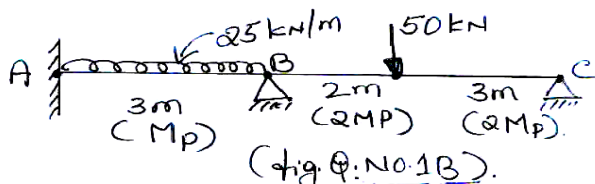 25 kN/m
50 kN
A
B
C
3m
2m
3m
(Mp)
(2MP)
(2Mp).
(fig. Q: NO. 1B).